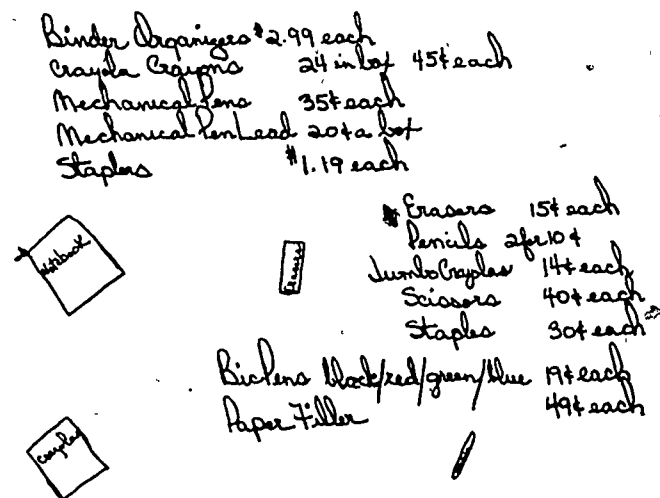 Binder Organizers $2.99 each
Crayola Crayons 24 in box 45¢ each
Mechanical Pens 35¢ each
Mechanical Pen Lead 20¢ a box
Staplers $1.19 each
Erasers 15¢ each
Pencils 2 for 10¢
Jumbo Crayolas 14¢ each
Scissors 40¢ each
Staples 30¢ each
Bic Pens black/red/green/blue 19¢ each
Paper Filler 49¢ each
Notebook
crayolas